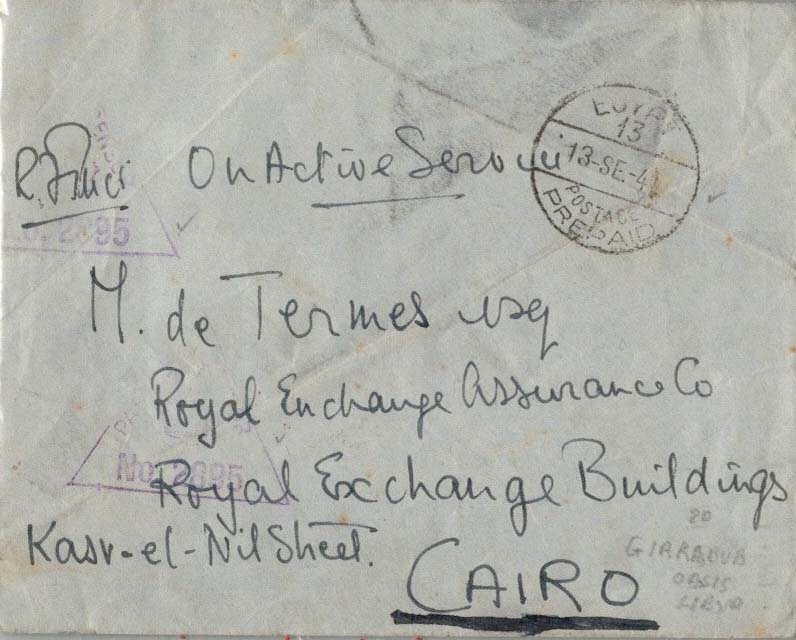 EGYPT
13
13-SE.-4
POSTAGE
PREPAID
On Active Service
R.
No. 2895
M. de Termes esq
Royal Exchange Assurance Co
No. 2895
Royal Exchange Buildings
Kasr-el-Nil Street.
CAIRO
20
GIARABUB
OASIS
LIBYA